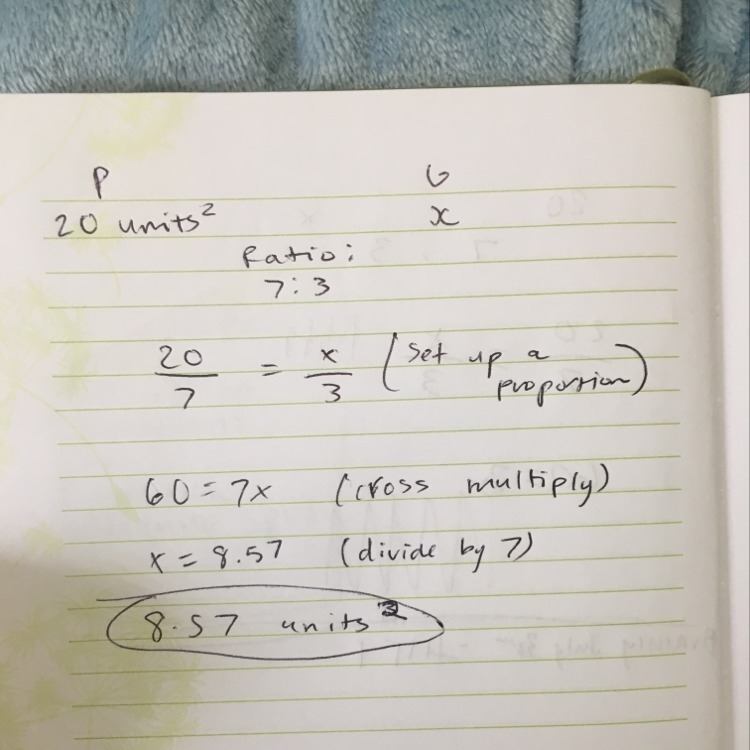 P G
20 units² x
Ratio:
7:3
20/7 = x/3 (set up a
proportion)
60 = 7x (cross multiply)
x = 8.57 (divide by 7)
8.57 units²